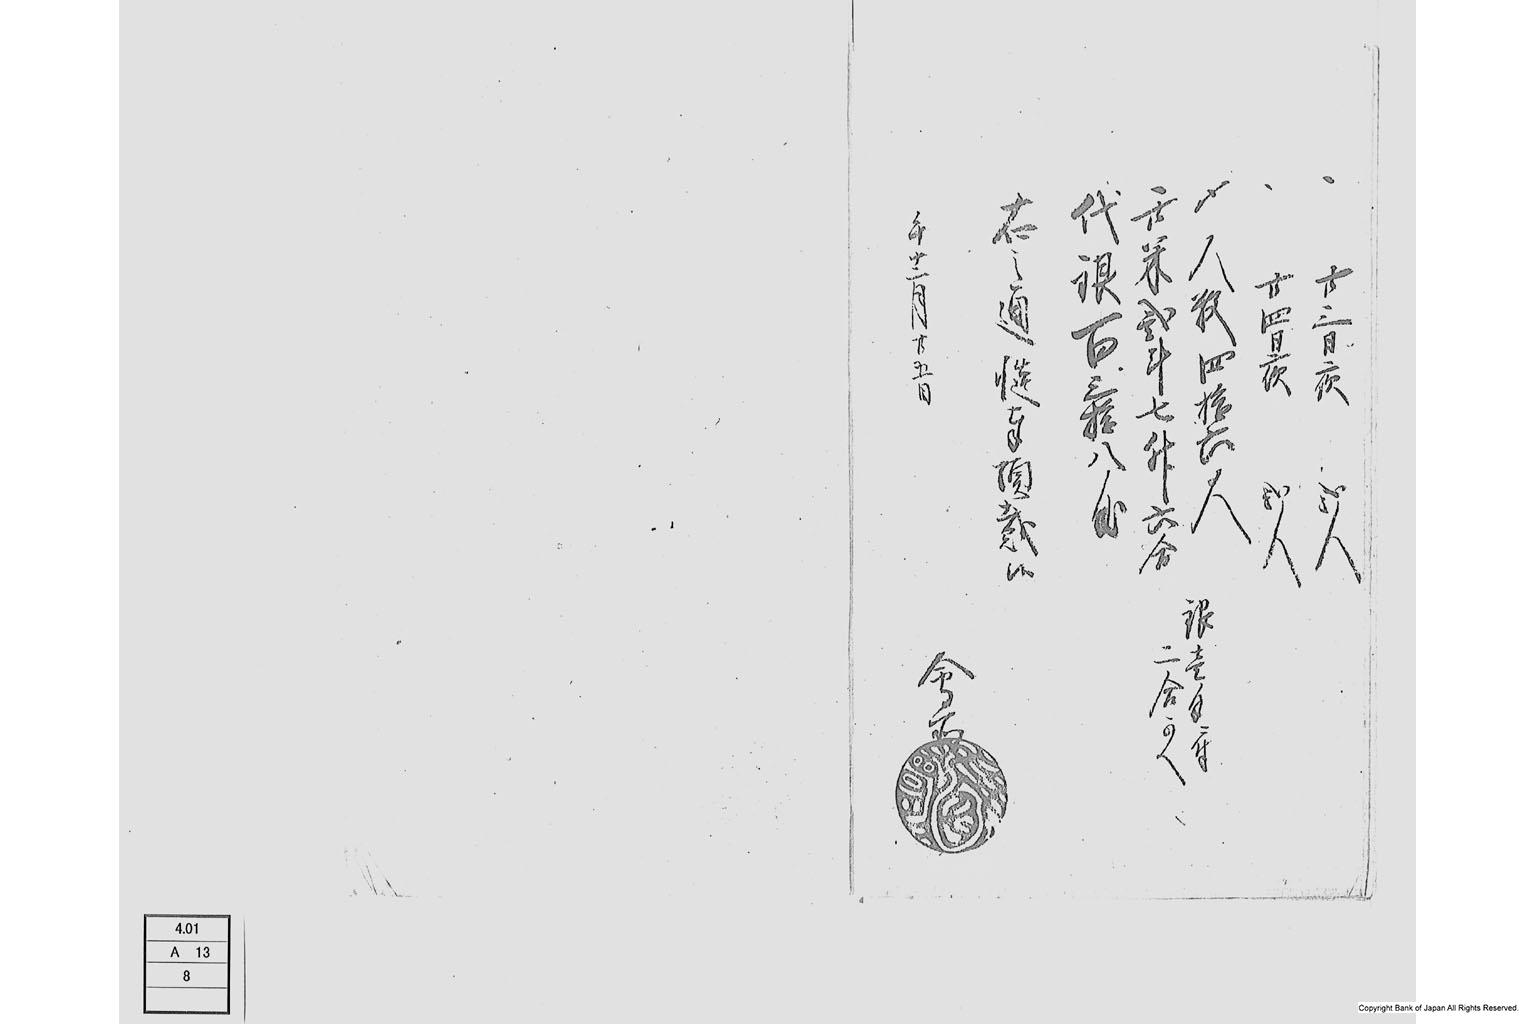 一 廿三日夜 弐人
一 廿四日夜 弐人
〆人数四拾六人
此米弐斗七升六合
銀壱匁ニ付
二合かへ
代銀百三拾八匁
右之通慥奉頂戴候
十二月廿五日
4.01
A 13
8
Copyright Bank of Japan All Rights Reserved.